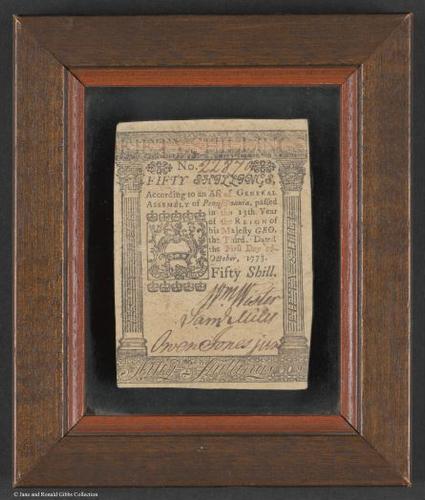 FIFTY SHILLINGS
No. 2287
FIFTY SHILLINGS,
According to an Act of GENERAL
ASSEMBLY of Pennsylvania, passed
in the 13th Year
of the REIGN of
his Majesty GEO.
the Third. Dated
the First Day of
October, 1773.
Fifty Shill.
Wm Wister
Sam Miles
Owen Jones jun
Fifty Shillings
© Jane and Ronald Gibbs Collection